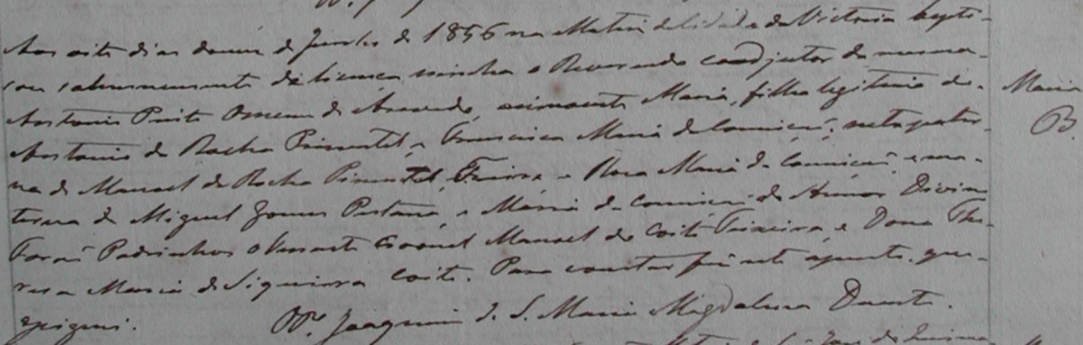 Aos oito dias do mez de Junho de 1856 na Matriz da Cidade da Victoria bapti-
sou solemnemente de licença minha o Reverendo coadjutor da mesma
Antonio Pinto de Azevedo, a innocente Maria, filha legitima de Maria
Antonio da Rocha Pimentel, e Francisca Maria da Conceicaõ, neta pater- B.
na de Manoel da Rocha Pimentel, e Rosa Maria da Conceicaõ, e ma-
terna de Miguel Gomes Pestana, e Maria da Conceicaõ de Divina
Foraõ Padrinhos o Manoel da Costa Teixeira, e Dona The-
resa Maria de Siqueira Para constar fiz este assento, que
assignei. Joaquim de S. Maria Magdalena Duarte.